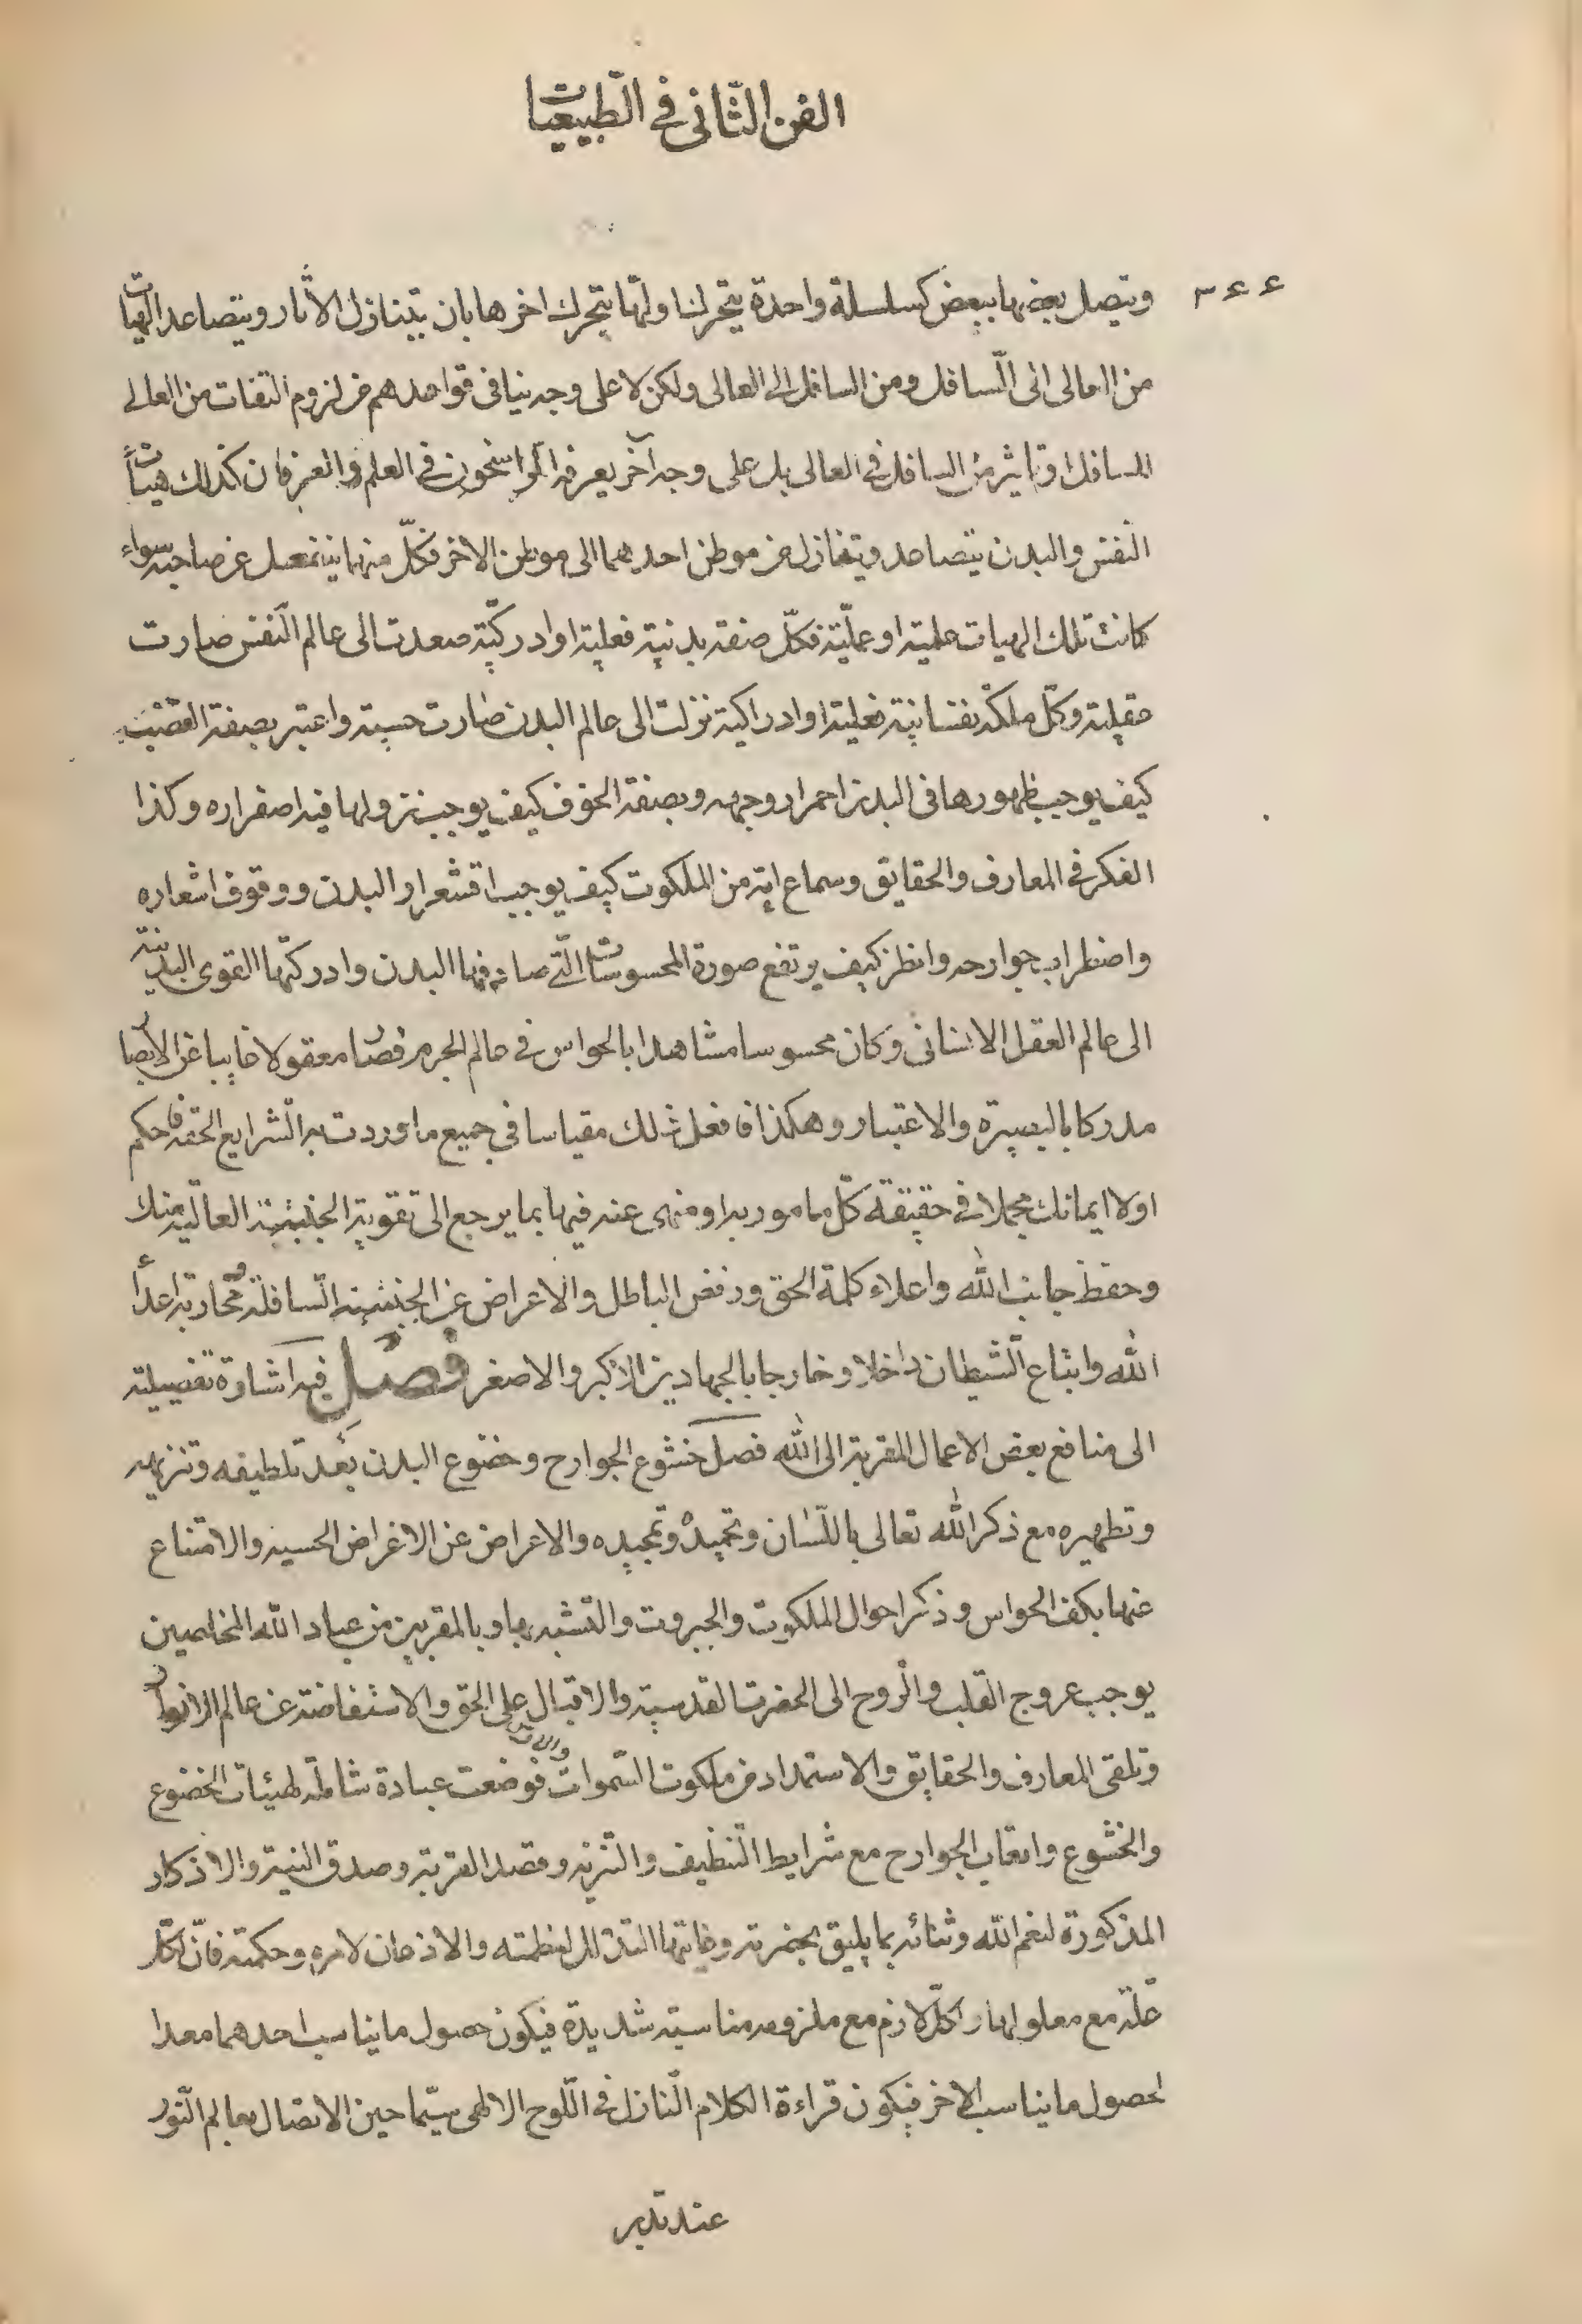 الفن الثانى فى الطبيعيات
٣٤٤
ويتصل بعضها ببعض كسلسلة واحدة يتحرك اولها يتحرك اخرها بان يتنازل الاثار ويتصاعد الهيات
من العالى الى السافل ومن السافل الى العالى ولكن لا على وجه ينافى قواعدهم من لزوم التفات من العالى
السافل او تاثير من السافل فى العالى بل على وجه آخر يعرفه الراسخون فى العلم والعرفان كذلك هيات
النفس والبدن يتصاعد ويتنازل من موطن احدهما الى موطن الاخر فكل منهما ينفعل عن صاحبه سواء
كانت تلك الهيات علمية او عملية فكل صفة بدنية فعلية او ادركية صعدت الى عالم النفس صارت
عقلية وكل ملكة نفسانية فعلية او ادراكية نزلت الى عالم البدن صارت حسية واعتبر بصفة الغضب
كيف يوجب ظهورها فى البدن احمرار وجهه وبصفة الخوف كيف يوجب نزولها فيه اصفراره وكذا
الفكر فى المعارف والحقايق وسماع اية من الملكوت كيف يوجب اقشعرار البدن ووقوف اشعاره
واضطراب جوارحه وانظر كيف يرتفع صورة المحسوسات التى صادفها البدن وادركتها القوى البدنية
الى عالم العقل الانسانى وكان محسوسا مشاهدا بالحواس فى عالم الجرم فصار معقولا غايبا عن الابصار
مدركا بالبصيرة والاعتبار وهكذا فافعل ذلك مقياسا في جميع ما اوردت به الشرايع الحقه فاحكم
اولا ايمانك مجملا فى حقيقة كل مامور به او منهى عنه فيها بما يرجع الى تقوية الجنبة العالية منك
وحفظ جانب الله واعلاء كلمة الحق ورفض الباطل والاعراض عن الجنبة السافلة ومحاربة اعدآء
الله واتباع الشيطان داخلا وخارجا بالجهادين الاكبر والاصغر فصل فيه اشارة تفصيلية
الى منافع بعض الاعمال المقربة الى الله فصل خشوع الجوارح وخضوع البدن بعد تلطيفه وتنزيهه
وتطهيره مع ذكر الله تعالى باللسان وتحميده وتمجيده والاعراض عن الاغراض الحسية والامتناع
عنها بكف الحواس وذكر احوال الملكوت والجبروت والتشبه بها وبالمقربين من عباد الله المخلصين
يوجب عروج القلب والروح الى الحضرت القدسية والاقبال على الحق والاستفاضة عن عالم الانوار
وتلقى المعارف والحقايق والاستمداد من ملكوت السموات فوضعت عبادة شاملة لهيئات الخضوع
والخشوع واتعاب الجوارح مع شرايط التنظيف والتنزيه وقصد القربة وصدق النية والاذكار
المذكورة لنعم الله وثنائه بما يليق بحضرته وغايتها التذلل لعظمته والاذعان لامره وحكمته فان لكل
علة مع معلولها ولكل لازم مع ملزومه مناسبة شديدة فيكون حصول ما يناسب احدهما معدا
لحصول ما يناسب الاخر فيكون قراءة الكلام النازل فى اللوح الالهى سيما حين الاتصال بعالم النور
عند تدبر